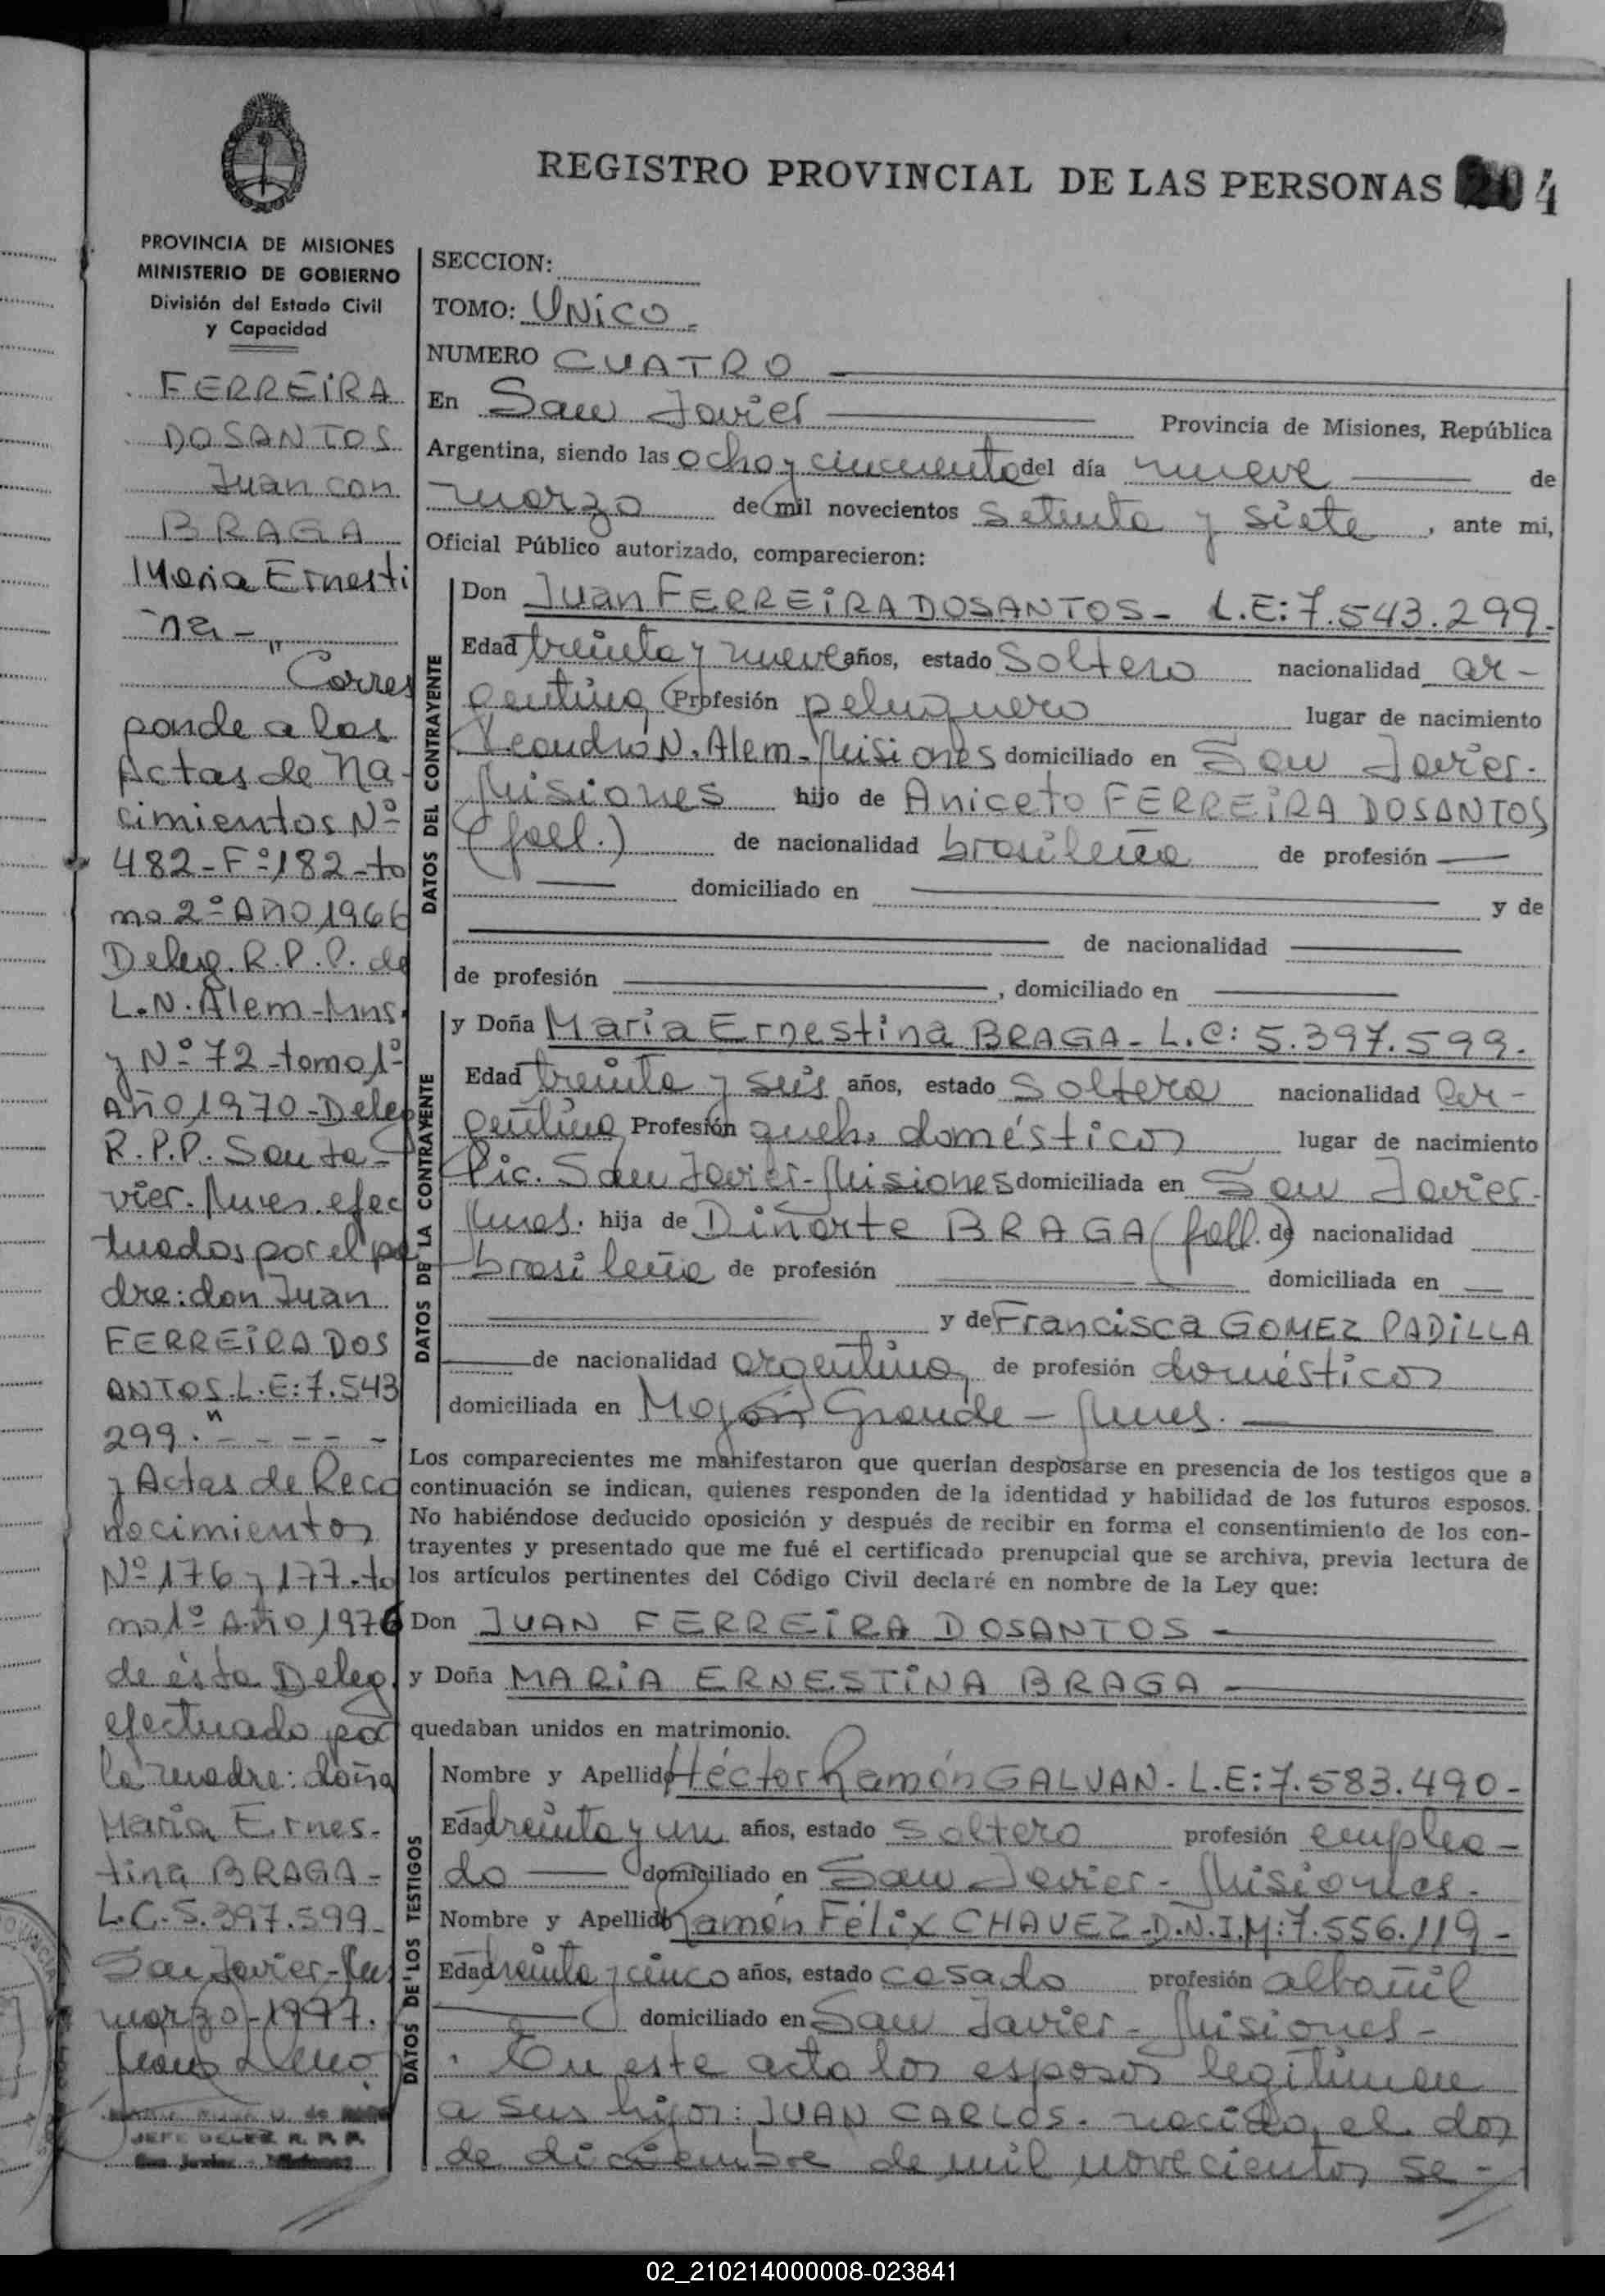 REGISTRO PROVINCIAL DE LAS PERSONAS 204
PROVINCIA DE MISIONES
MINISTERIO DE GOBIERNO
División del Estado Civil
y Capacidad
FERREIRA
DOSANTOS
Juan con
BRAGA
Maria Ernesti
na-"
Corres
ponde a las
Actas de Na-
cimientos Nº
482-Fº182-to
mo 2º Año 1966
Deleg. R.P.P. de
L.N. Alem-Mns.
y Nº 72-tomo 1º
Año 1970-Deleg
R.P.P. San Ja-
vier. Mnes. efec
tuados por el pa
dre: don Juan
FERREIRA DOS
ANTOS. L.E: 7.543
299."- - - - -
y Actas de Reco
nocimientos
Nº 176 y 177-to
mo 1º Año 1976
de ésta Deleg.
efectuado por
la madre: doña
María Ernes-
tina BRAGA-
L.C. 5.397.599-
San Javier-Mns
marzo-1977.
JEFE DELEG. R. P. P.
San Javier - Misiones
SECCION:
TOMO: UNICO-
NUMERO CUATRO
En San Javier Provincia de Misiones, República
Argentina, siendo las ocho y cincuenta del día nueve de
marzo de mil novecientos setenta y siete, ante mi,
Oficial Público autorizado, comparecieron:
DATOS DEL CONTRAYENTE
Don Juan FERREIRA DOSANTOS- L.E: 7.543.299.-
Edad treinta y nueve años, estado soltero nacionalidad ar-
gentina Profesión peluquero lugar de nacimiento
Leandro N. Alem-Misiones domiciliado en San Javier-
Misiones hijo de Aniceto FERREIRA DOSANTOS
(fall.) de nacionalidad brasileña de profesión
domiciliado en y de
de nacionalidad
de profesión , domiciliado en
DATOS DE LA CONTRAYENTE
y Doña María Ernestina BRAGA- L.C: 5.397.599.-
Edad treinta y seis años, estado soltera nacionalidad ar-
gentina Profesión queh. domésticos lugar de nacimiento
Pic. San Javier-Misiones domiciliada en San Javier-
Mnes. hija de Dinarte BRAGA (fall.) de nacionalidad
brasileña de profesión domiciliada en
y de Francisca GOMEZ PADILLA
de nacionalidad argentina, de profesión domésticos
domiciliada en Mojón Grande - Mnes.
Los comparecientes me manifestaron que querían desposarse en presencia de los testigos que a
continuación se indican, quienes responden de la identidad y habilidad de los futuros esposos.
No habiéndose deducido oposición y después de recibir en forma el consentimiento de los con-
trayentes y presentado que me fué el certificado prenupcial que se archiva, previa lectura de
los artículos pertinentes del Código Civil declaré en nombre de la Ley que:
Don JUAN FERREIRA DOSANTOS
y Doña MARIA ERNESTINA BRAGA
quedaban unidos en matrimonio.
DATOS DE LOS TESTIGOS
Nombre y Apellido Héctor Ramón GALVAN- L.E: 7.583.490-
Edad treinta y un años, estado soltero profesión emplea-
do domiciliado en San Javier- Misiones-
Nombre y Apellido Ramón Félix CHAVEZ-D.N.I.M: 7.556.119-
Edad treinta y cinco años, estado casado profesión albañil
domiciliado en San Javier- Misiones-
. En este acto los esposos legitiman
a sus hijos: JUAN CARLOS- nacido el dos
de diciembre de mil novecientos se-
02_210214000008-023841